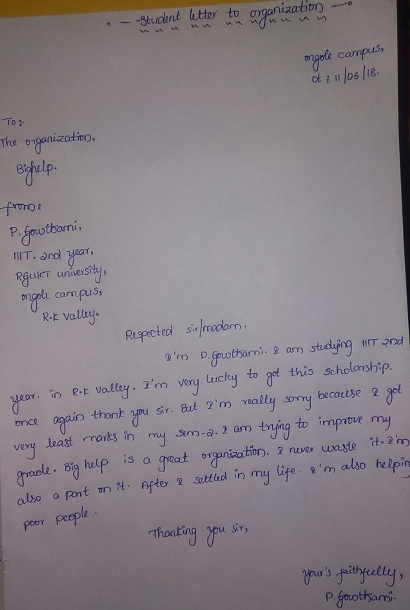 Student letter to organization
ongole campus,
dt : 11/06/18.
To :-
The organization,
Bighelp.
from :
P. Gowthami,
IIIT. 2nd year,
RGUKT university,
ongole campus,
R.K valley.
Respected sir/madam.
I'm P. Gowthami. I am studying IIIT 2nd
year. in R.K valley. I'm very lucky to get this scholarship.
once again thank you sir. But I'm really sorry because I got
very least marks in my sem-2. I am trying to improve my
grade. Big help is a great organization. I never waste it. I'm
also a part on it. After I settled in my life. I'm also helping
poor people.
Thanking you sir,
your's faithfully,
P. Gowthami.